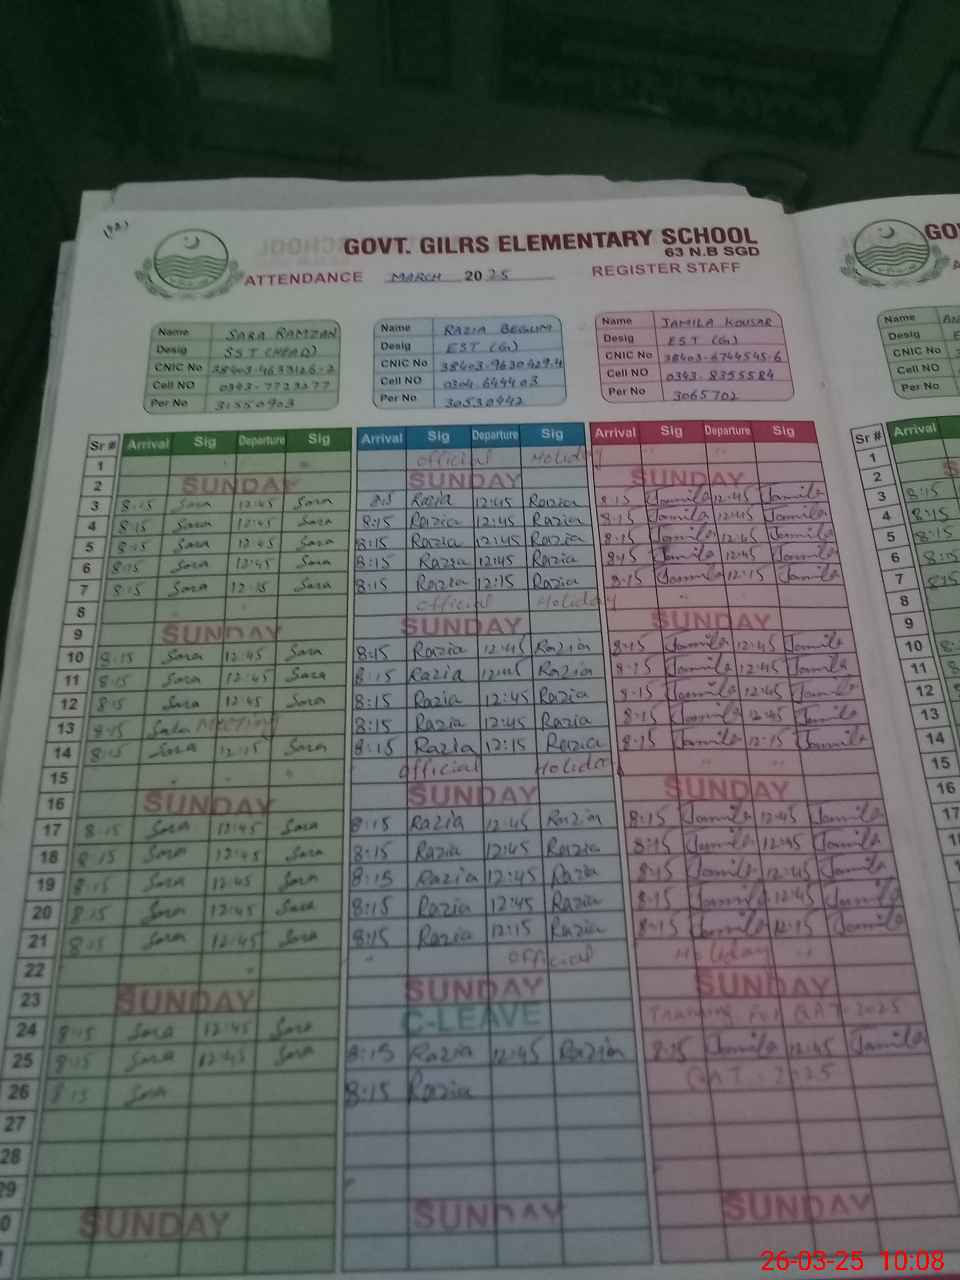 (92)
GOVT. GILRS ELEMENTARY SCHOOL
63 N.B SGD
ATTENDANCE MARCH 2025 REGISTER STAFF
Name SARA RAMZAN
Desig SST (HEAD)
CNIC No
Cell NO
Per No 31550903
Name RAZIA BEGUM
Desig EST (G)
CNIC No 38403-9630429-4
Cell NO
Per No 30530442
Name JAMILA KOUSAR
Desig EST (G)
CNIC No 38403-6744545-6
Cell NO 0343-8355584
Per No 3065702
Name
Desig
CNIC No
Cell NO
Per No
Sr # Arrival Sig Departure Sig Arrival Sig Departure Sig Arrival Sig Departure Sig Sr # Arrival
1 official Holiday 1
2 SUNDAY SUNDAY SUNDAY 2
3 8:15 Sara 12:45 Sara Razia 12:45 Razia 8:15 Jamila 12:45 Jamila 3 8:15
4 8:15 Sara 12:45 Sara 8:15 Razia 12:45 Razia 8:15 Jamila 12:45 Jamila 4 8:15
5 8:15 Sara 12:45 Sara 8:15 Razia 12:45 Razia 8:15 Jamila 12:45 Jamila 5 8:15
6 8:15 Sara 12:45 Sara 8:15 Razia 12:45 Razia 8:15 Jamila 12:45 Jamila 6 8:15
7 8:15 Sara 12:15 Sara 8:15 Razia 12:15 Razia 8:15 Jamila 12:15 Jamila 7 8:15
8 official Holiday 8
9 SUNDAY SUNDAY SUNDAY 9
10 8:15 Sara 12:45 Sara 8:15 Razia 12:45 Razia 8:15 Jamila 12:45 Jamila 10 8:15
11 8:15 Sara 12:45 Sara 8:15 Razia 12:45 Razia 8:15 Jamila 12:45 Jamila 11 8:15
12 8:15 Sara 12:45 Sara 8:15 Razia 12:45 Razia 8:15 Jamila 12:45 Jamila 12 8:15
13 8:15 Sara MEETING 8:15 Razia 12:45 Razia 8:15 Jamila 12:45 Jamila 13 8:15
14 8:15 Sara 12:15 Sara 8:15 Razia 12:15 Razia 8:15 Jamila 12:15 Jamila 14 8:15
15 official Holiday 15
16 SUNDAY SUNDAY SUNDAY 16
17 8:15 Sara 12:45 Sara 8:15 Razia 12:45 Razia 8:15 Jamila 12:45 Jamila 17
18 8:15 Sara 12:45 Sara 8:15 Razia 12:45 Razia 8:15 Jamila 12:45 Jamila
19 8:15 Sara 12:45 Sara 8:15 Razia 12:45 Razia 8:15 Jamila 12:45 Jamila
20 8:15 Sara 12:45 Sara 8:15 Razia 12:45 Razia 8:15 Jamila 12:45 Jamila
21 8:15 Sara 12:45 Sara 8:15 Razia 12:15 Razia 8:15 Jamila 12:15 Jamila
22 official Holiday
23 SUNDAY SUNDAY SUNDAY
24 8:15 Sara 12:45 Sara C-LEAVE Training For QAT-2025
25 8:15 Sara 12:45 Sara 8:15 Razia 12:45 Razia 8:15 Jamila 12:45 Jamila
26 8:15 Sara 8:15 Razia QAT-2025
27
28
29
SUNDAY SUNDAY SUNDAY
26-03-25 10:08